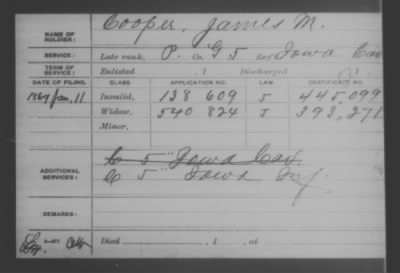 NAME OF SOLDIER: Cooper, James M.
SERVICE: Late rank, P. Co. G 5 Reg't Iowa Cav
TERM OF SERVICE: Enlisted , 1 Discharged , 1
DATE OF FILING. CLASS. APPLICATION NO. LAW. CERTIFICATE NO.
1869 Jan. 11 Invalid, 138 609 J 445,099
Widow, 540 824 J 393,271
Minor,
ADDITIONAL SERVICES: C 5" Iowa Cav
C 5" Iowa Inf.
REMARKS:
Died , 1 , at